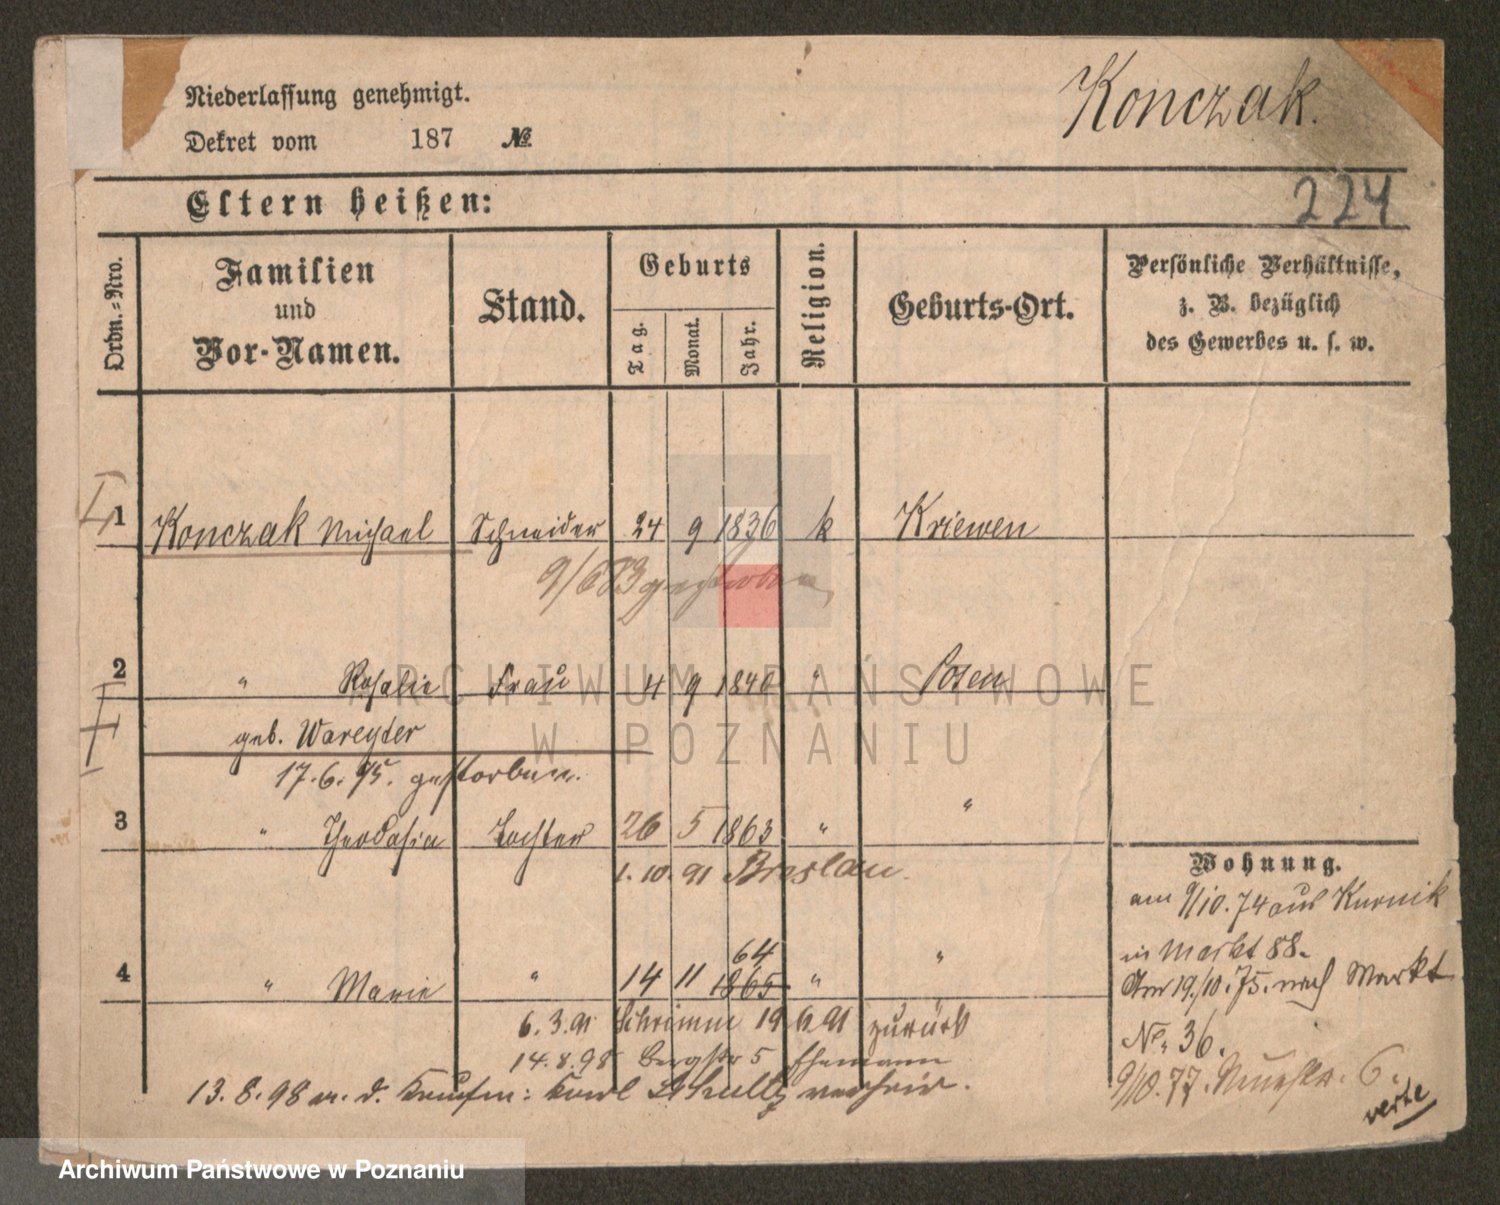 Niederlassung genehmigt.
Konczak.
Dekret vom 187 №
Eltern heißen:
224
Ordn.-Nro.
Familien und Vor-Namen.
Stand.
Geburts
Tag.
Monat.
Jahr.
Religion.
Geburts-Ort.
Persönliche Verhältnisse,
z. B. bezüglich
des Gewerbes u. s. w.
1 Konczak Michael Schneider 24 9 1836 k Kriewen
9/6 83 gestorben
2 " Rosalie Frau 4 9 1840 " Posen
geb. Wareyter
17.6.95. gestorben.
3 " Theodosia Tochter 26 5 1863 " "
1.10.91 Breslau.
Wohnung.
am 9/10.74 aus Kurnik
in Markt 88.
Am 19/10.75. nach Markt
No. 36.
9/10.77. 6.
verte
64
4 " Marie " 14 11 1865 " "
6.3.91 Schrimm 19 6 91 zurück
14.8.98 Bergstr 5 Ehemann
13.8.98 m. d. Kaufm: Karl Schultz verheir.
ARCHIWUM PAŃSTWOWE
W POZNANIU
Archiwum Państwowe w Poznaniu